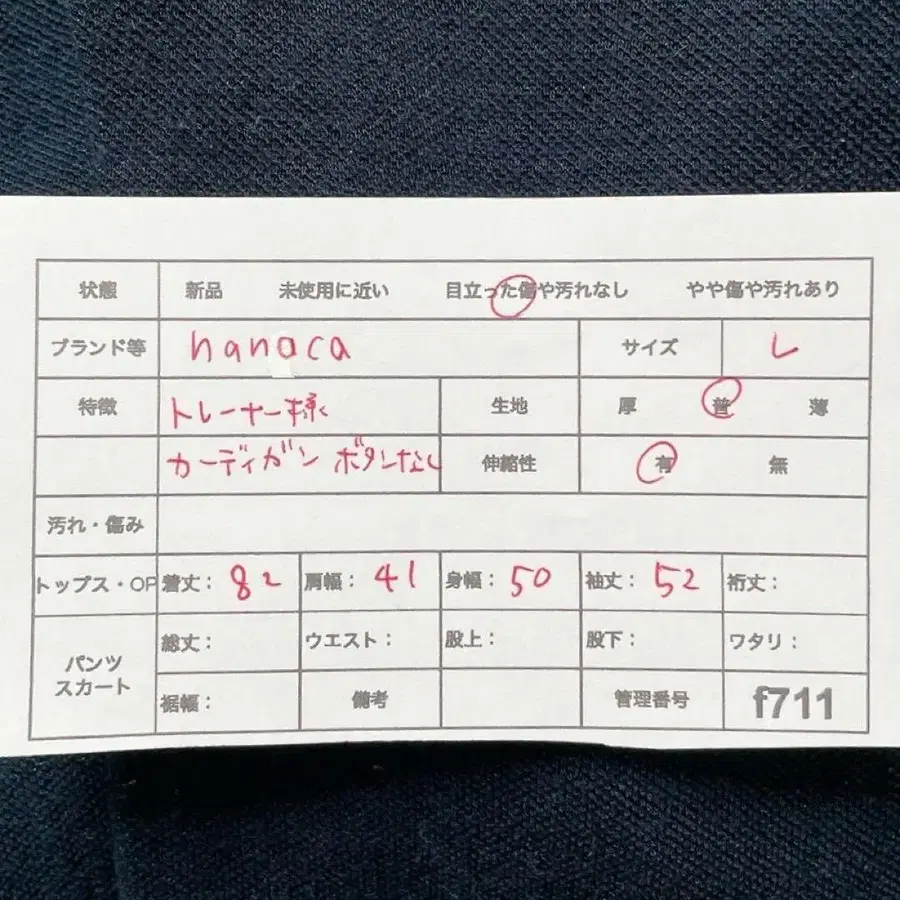 状態 新品 未使用に近い 目立った傷や汚れなし やや傷や汚れあり
ブランド等 hanaca サイズ L
特徴 トレーナー様 生地 厚 普 薄
カーディガン ボタンなし 伸縮性 有 無
汚れ・傷み
トップス・OP 着丈： 82 肩幅： 41 身幅： 50 袖丈： 52 裄丈：
パンツ スカート 総丈： ウエスト： 股上： 股下： ワタリ：
裾幅： 備考 管理番号 f711